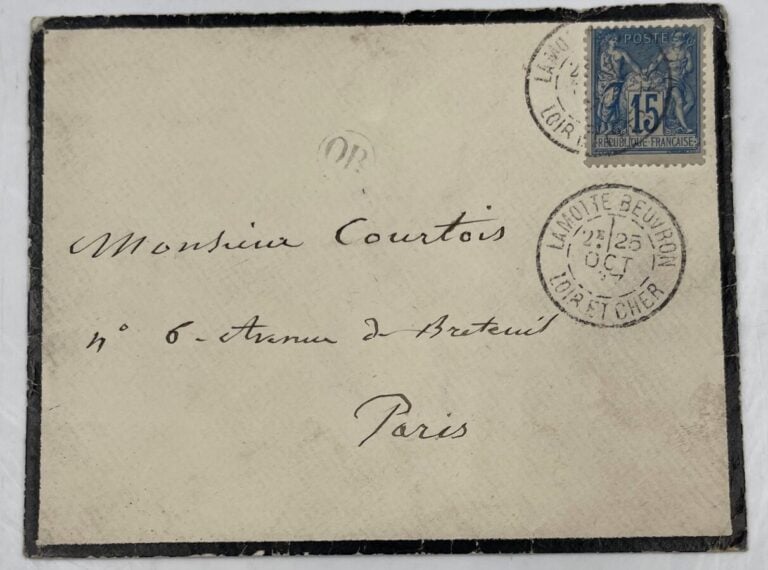 LAMO
LOIR
POSTE
15
RÉPUBLIQUE FRANÇAISE
OR
LAMOTTE BEUVRON
2E 25
OCT
LOIR ET CHER
Monsieur Courtois
n° 6 - Avenue de Breteuil
Paris